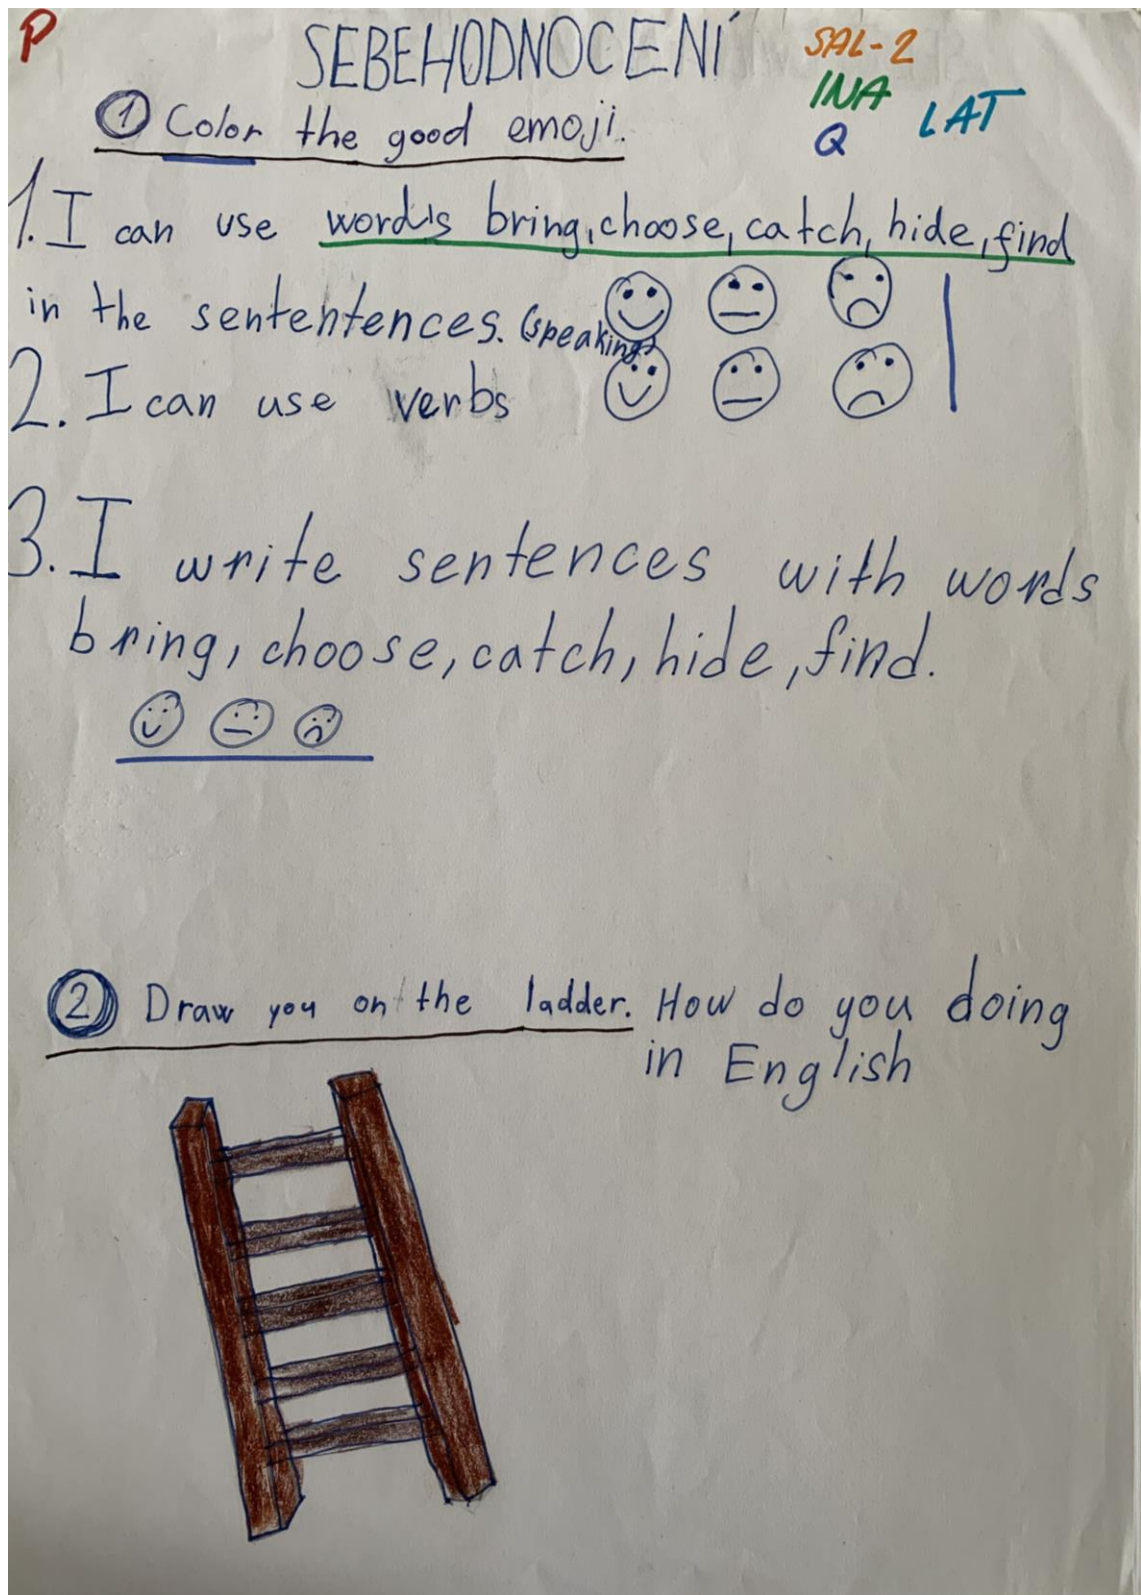 P
SEBEHODNOCENÍ
SAL-2
INA
LAT
Q
1 Color the good emoji.
1. I can use words bring, choose, catch, hide, find
in the sententences. (speaking)
2. I can use verbs
3. I write sentences with words
bring, choose, catch, hide, find.
2 Draw you on the ladder. How do you doing
in English